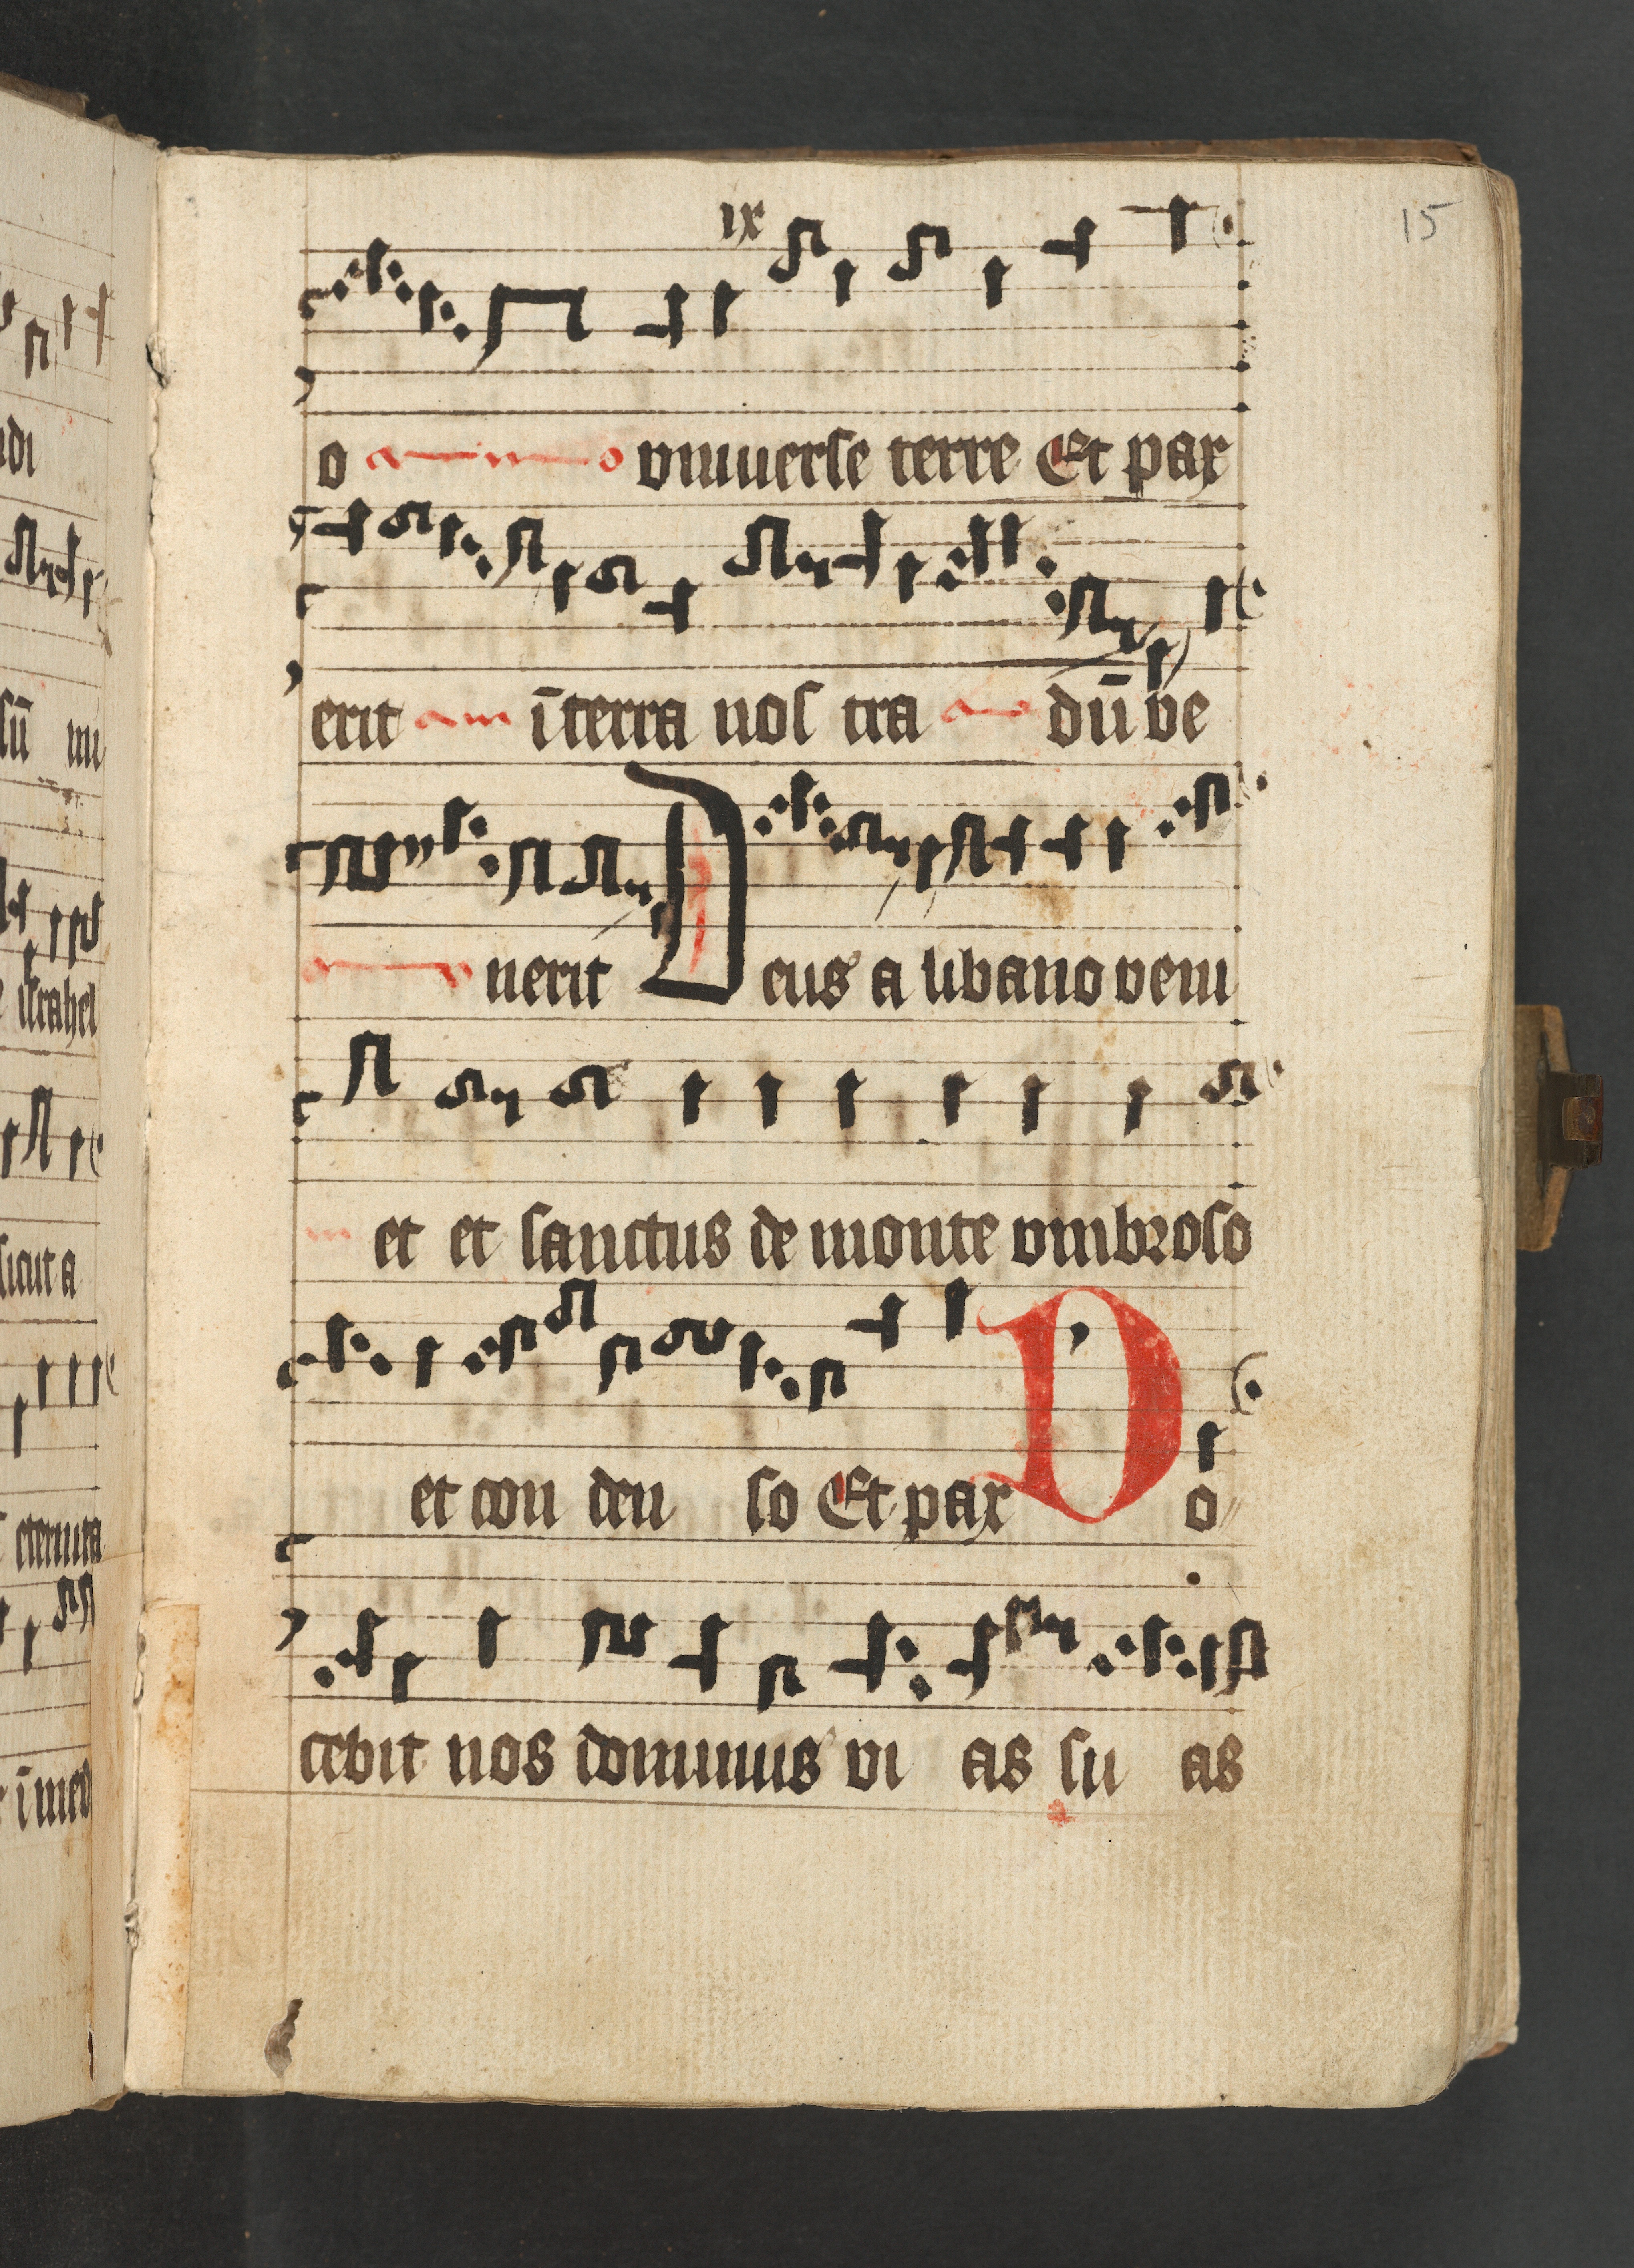 15
ix
o vniuerse terre Et pax
erit īterra nos tra dū ve
nerit Deus a libano veni
et et sanctus de monte vmbroso
et con den so Et pax Do
cebit nos dominus vi as su as
di
sū mi
israhel
sicut a
eterni ta